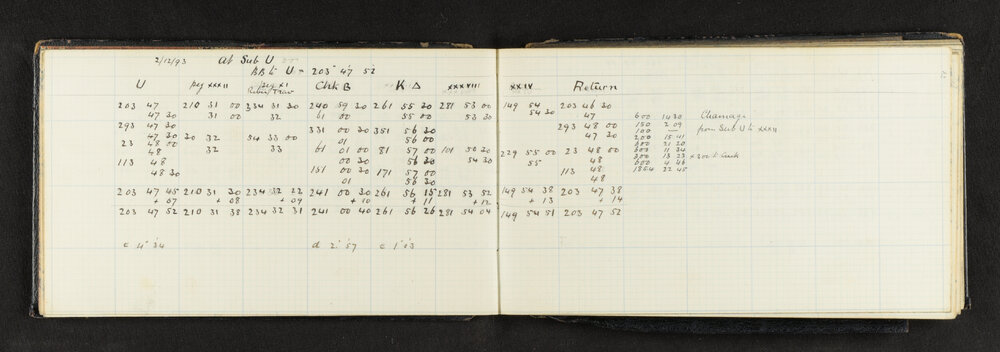 2/12/93 At Sub U
BB to U = 203° 47' 52"
U peg XXXII peg XI Chk B K Δ XXXVIII XXIV Return
203 47 210 31 00 234 31 30 240 59 30 261 55 30 281 53 00 149 54 203 46 30
47 30 31 00 32 61 00 55 00 53 30 54 30 47
293 47 30 331 00 30 351 56 30 293 48 00
47 30 30 32 54 33 00 01 56 00 47 30
23 48 00 32 33 61 01 00 81 57 00 101 53 30 229 55 00 23 48 00
48 00 30 56 30 54 30 55 48
113 48 151 00 30 171 57 00 113 48
48 30 01 56 30 48
203 47 45 210 31 30 234 32 22 241 00 30 261 56 15 281 53 52 149 54 38 203 47 38
+ 07 + 08 + 09 + 10 + 11 + 12 + 13 + 14
203 47 52 210 31 38 234 32 31 241 00 40 261 56 26 281 54 04 149 54 51 203 47 52
c 4° 34 d 2° 57 c 1° 13
600 14 30 Chainage
150 2 09 from Sub U to XXXII
100
200 15 41
300 21 20
300 11 34
300 13 23
600 4 46
1854 22 45